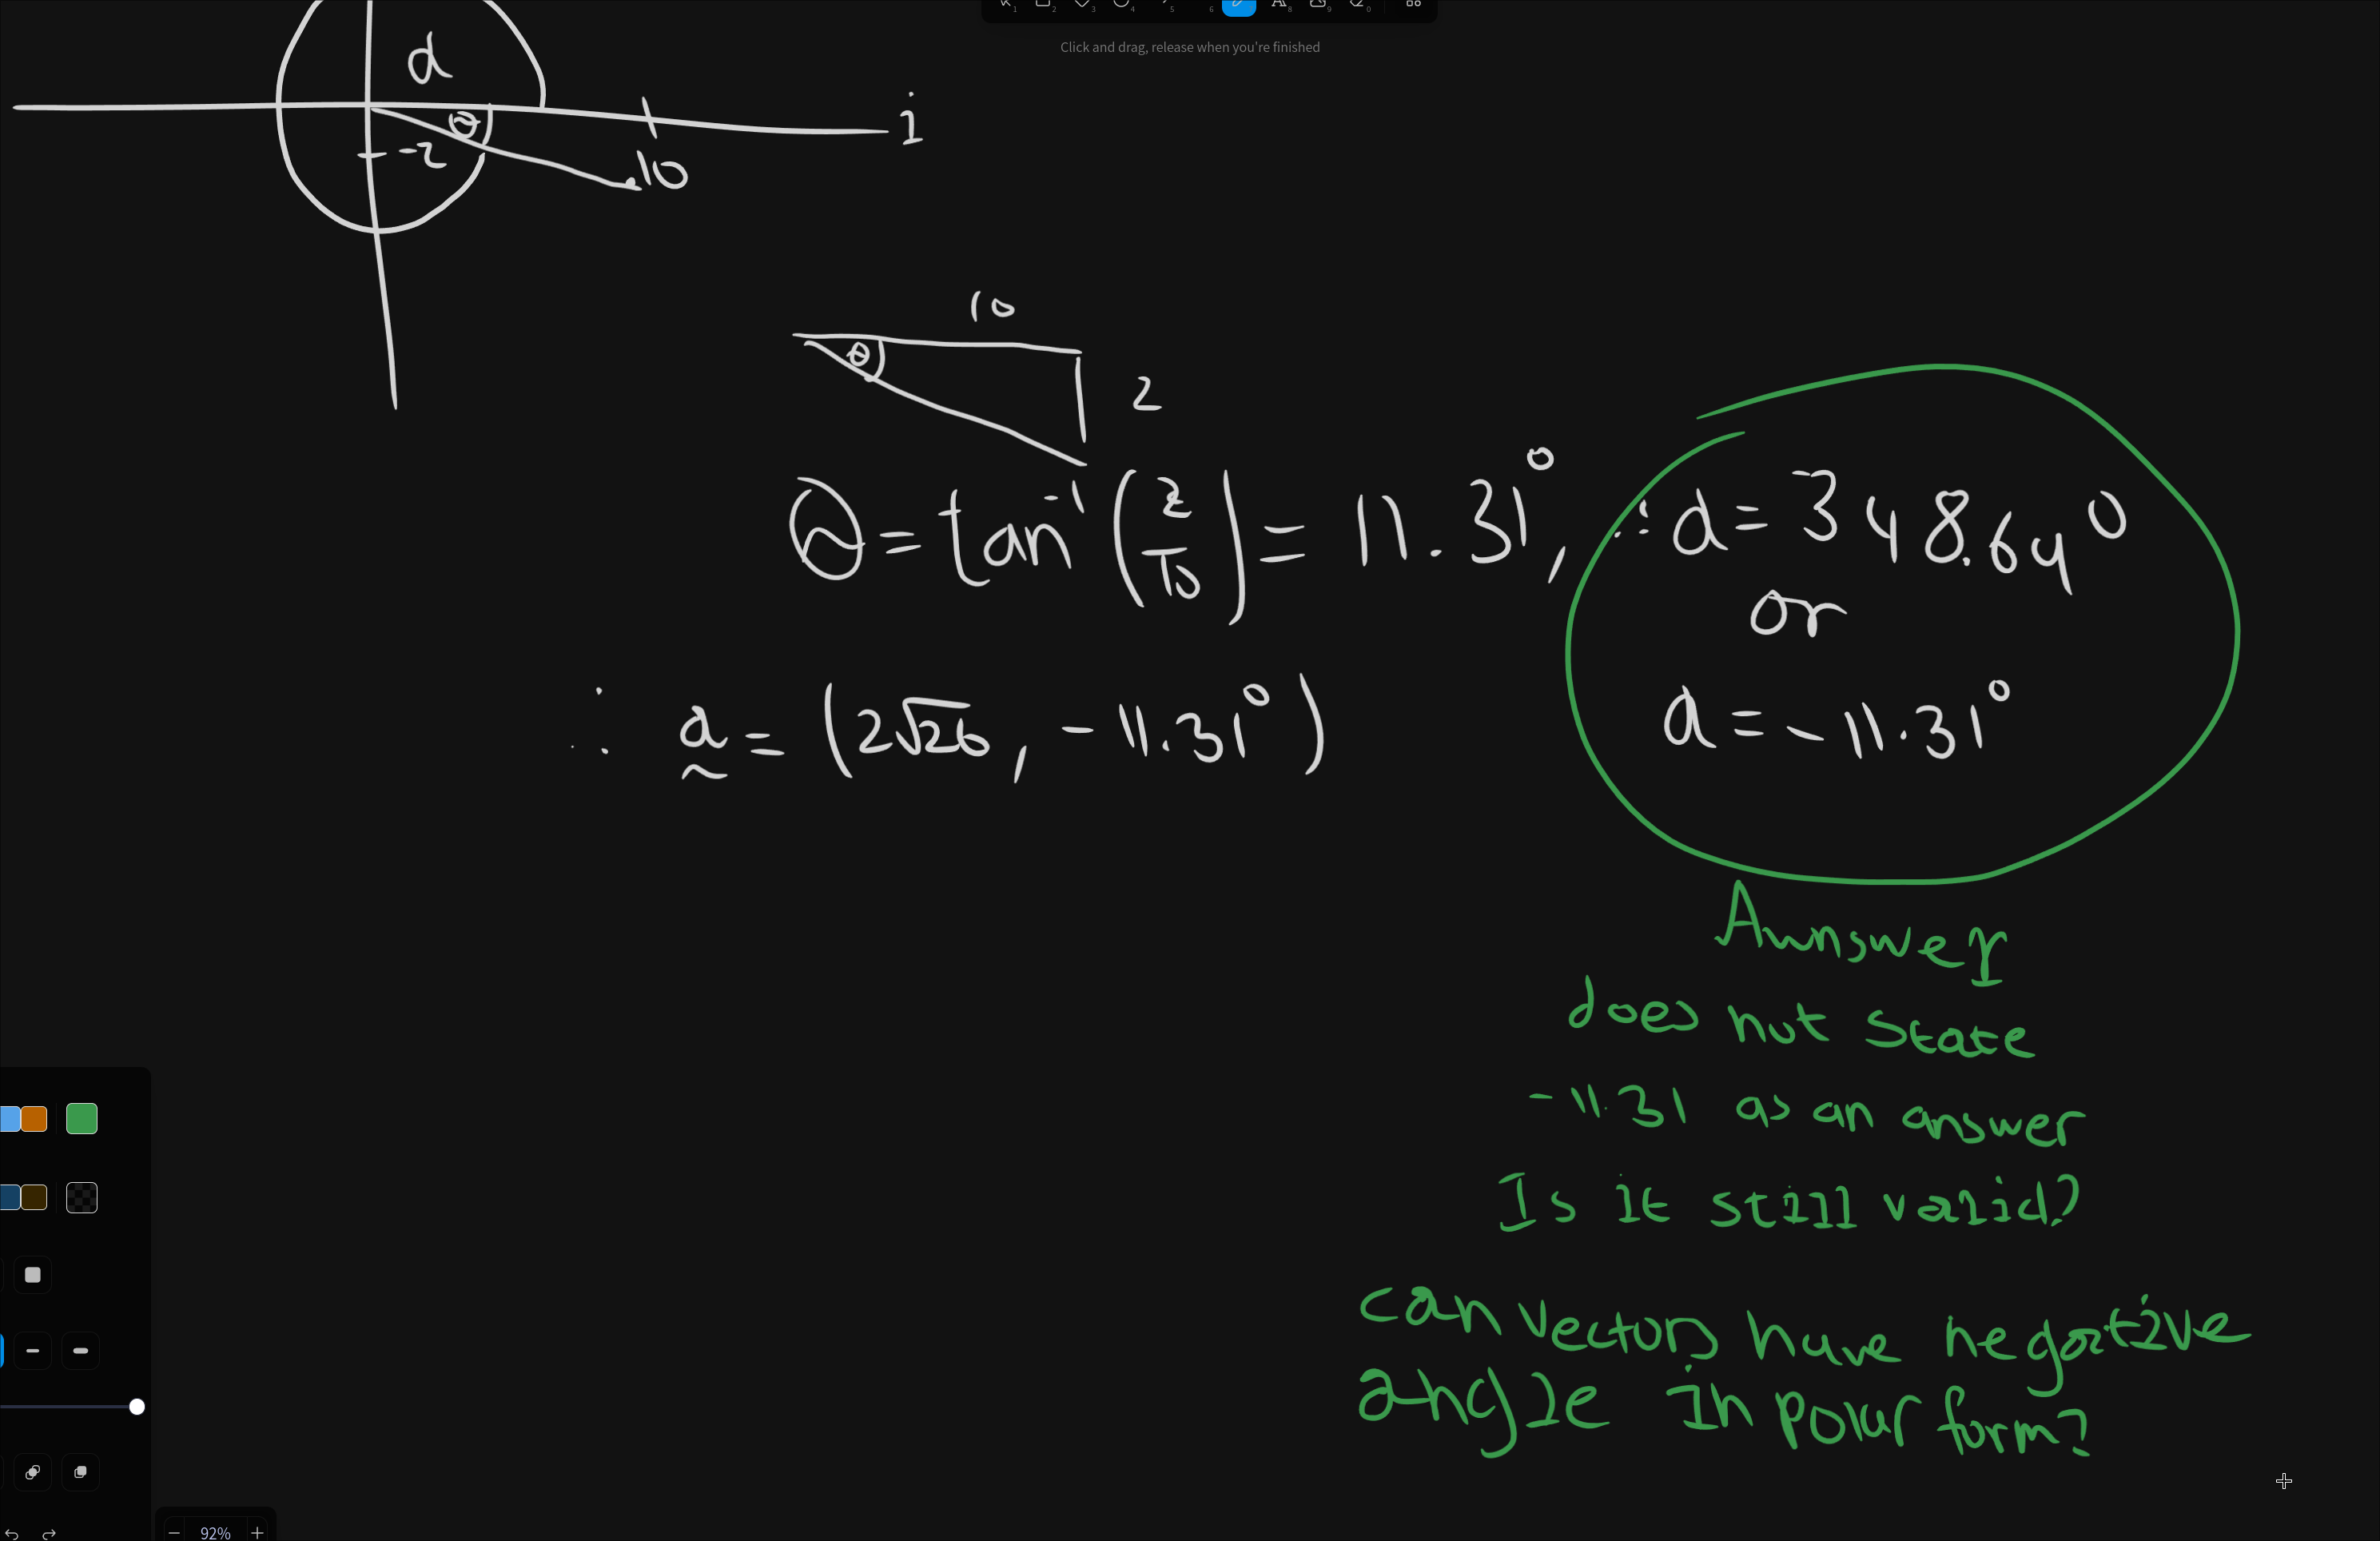 Click and drag, release when you're finished
d
i
θ
-2
10
10
θ
2
θ = tan⁻¹(2/10) = 11.31°, ∴ d = 348.69°
or
d = -11.31°
∴ a = (2√26, -11.31°)
~
Aunswer
does not state
-11.31 as an answer
Is it still valid?
can vectors have negative
angle in polar form?
92%